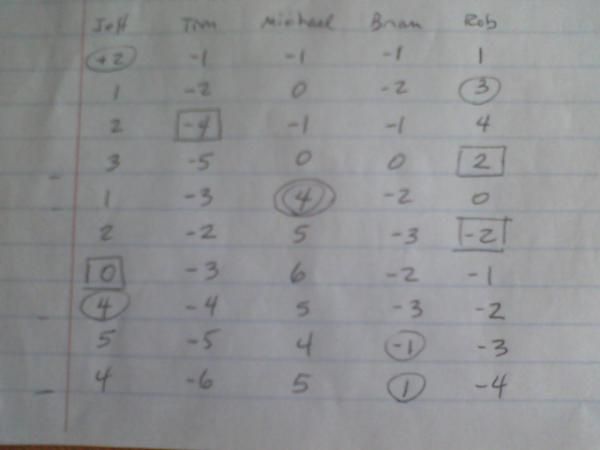 Jeff Tim Michael Brian Rob
+2 -1 -1 -1 1
1 -2 0 -2 3
2 -4 -1 -1 4
3 -5 0 0 2
1 -3 4 -2 0
2 -2 5 -3 -2
0 -3 6 -2 -1
4 -4 5 -3 -2
5 -5 4 -1 -3
4 -6 5 1 -4